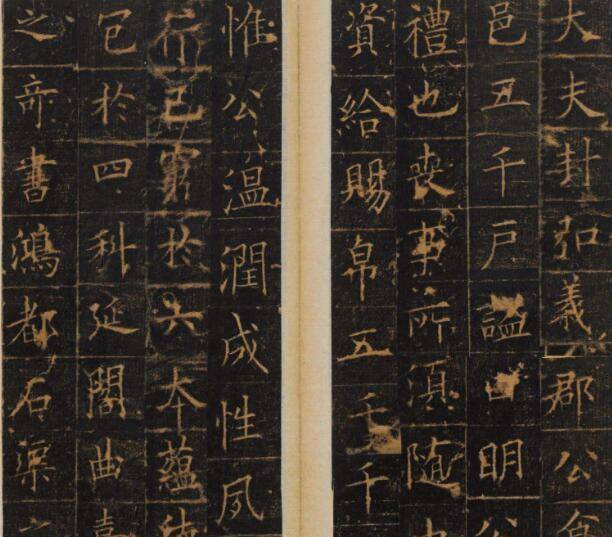 大夫封弘義郡公食
邑五千戶諡曰明公
禮也喪事所須隨
資給賜帛五千千
惟公溫潤成性夙
行己窮於六本蘊德
包於四科延閣曲臺
之奇書鴻都石渠之